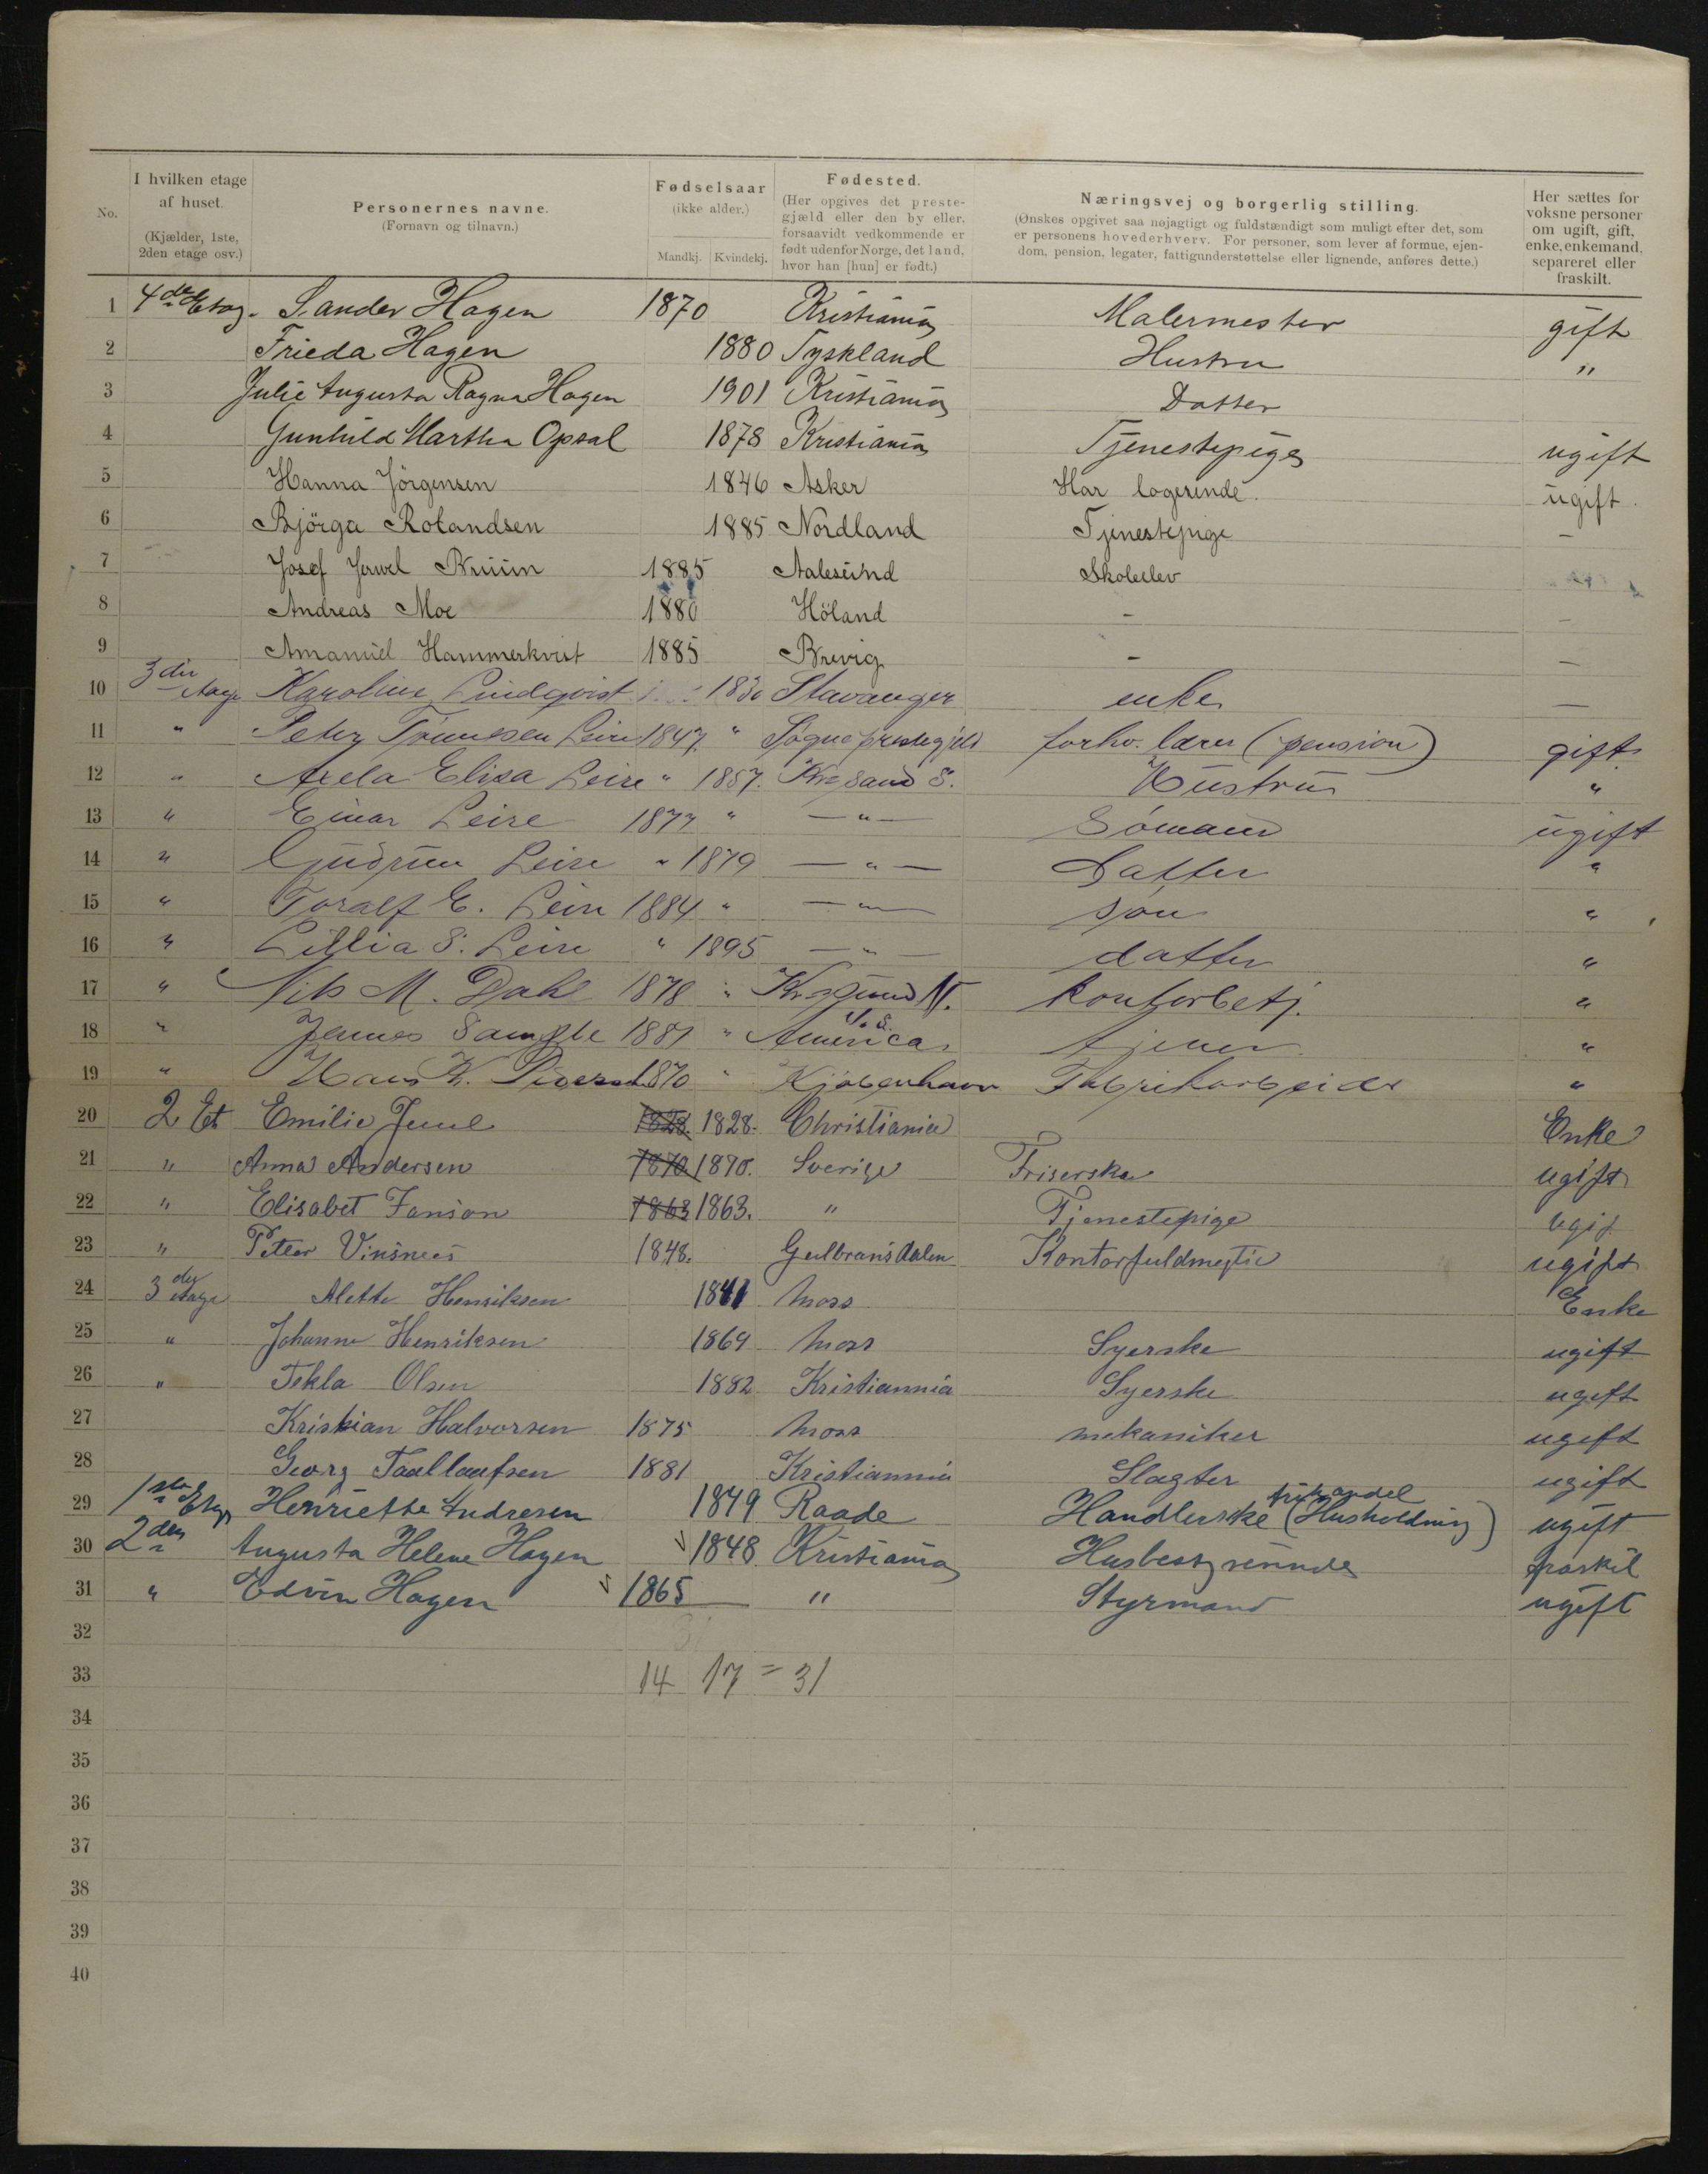 No.
I hvilken etage
af huset.
(Kjælder, 1ste,
2den etage osv.)
Personernes navne.
(Fornavn og tilnavn.)
Fødselsaar
(ikke alder.)
Mandkj. Kvindekj.
Fødested.
(Her opgives det preste-
gjæld eller den by eller,
forsaavidt vedkommende er
født udenfor Norge, det land,
hvor han [hun] er født.)
Næringsvej og borgerlig stilling.
(Ønskes opgivet saa nøjagtigt og fuldstændigt som muligt efter det, som
er personens hovederhverv. For personer, som lever af formue, ejen-
dom, pension, legater, fattigunderstøttelse eller lignende, anføres dette.)
Her sættes for
voksne personer
om ugift, gift,
enke, enkemand,
separeret eller
fraskilt.
1 4de Etag. Sander Hagen 1870 Kristiania Malermester gift
2 Frieda Hagen 1880 Tyskland Hustru "
3 Julie Augusta Ragna Hagen 1901 Kristiania Datter
4 Gunhild Martha Opsal 1878 Kristiania Tjenestepige ugift
5 Hanna Jörgensen 1846 Asker Har logerende. ugift.
6 Bjørga Rolandsen 1885 Nordland Tjenestepige –
7 Josef Bruun 1885 Aalesund Skoleelev
8 Andreas Moe 1880 Höland – –
9 Amanuel Hammerkvist 1885 Brevig – –
10 3die Etage Karoline Lindqvist 1830 Stavanger enke –
11 " Peter Tønnesen Leire 1847 " Sogne prestegjeld forhv. lærer (pension) gift
12 " Axela Elisa Leire " 1857. Kr.sand S. Hustru "
13 " Einar Leire 1877 " – " – Sømand ugift
14 " Gudrun Leire " 1879 – " – Datter "
15 " Toralf E. Leire 1884 " – " – søn "
16 " Lillia S. Leire " 1895 – " – datter "
17 " Nils M. Dahl 1878 " Kr.sund N. Kontorbetj. "
18 " James 1881 " America U.S. tjener "
19 " Hans K. 1870 " Kjøbenhavn Fabrikarbeider "
20 2 Et Emilie Juul 1828. 1828. Christiania Enke
21 " Anna Andersen 1870 1870. Sverige Friserske ugift
22 " Elisabet Janson 1863 1863. " Tjenestepige ugif
23 " Petter Vinsnes 1848. Gulbransdalen Kontorfuldmegtig ugift
24 3die etage Alette Henriksen 1841 Moss Enke
25 " Johanne Henriksen 1869 Moss Syerske ugift
26 " Tekla Olsen 1882 Kristiannia Syerske ugift
27 Kristian Halvorsen 1875 Moss mekaniker ugift
28 Georg Taallaufsen 1881 Kristiannia Slagter ugift
29 1ste Etage Henriette Andresen 1849 Raade Handlerske (Husholdning) ugift
30 2den Augusta Helene Hagen 1848 Kristiania Husbestyrerinde fraskil
31 " Edvin Hagen 1865 " Styrmand ugift
32
33 14 17 = 31
34
35
36
37
38
39
40